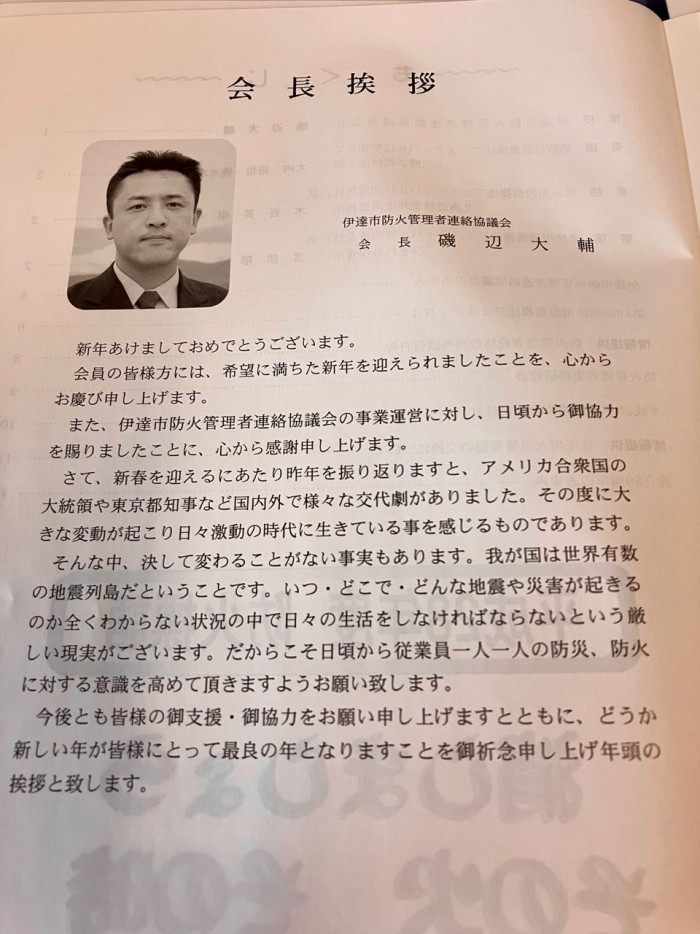 会長挨拶
伊達市防火管理者連絡協議会
会長 磯辺大輔
新年あけましておめでとうございます。
会員の皆様方には、希望に満ちた新年を迎えられましたことを、心から
お慶び申し上げます。
また、伊達市防火管理者連絡協議会の事業運営に対し、日頃から御協力
を賜りましたことに、心から感謝申し上げます。
さて、新春を迎えるにあたり昨年を振り返りますと、アメリカ合衆国の
大統領や東京都知事など国内外で様々な交代劇がありました。その度に大
きな変動が起こり日々激動の時代に生きている事を感じるものであります。
そんな中、決して変わることがない事実もあります。我が国は世界有数
の地震列島だということです。いつ・どこで・どんな地震や災害が起きる
のか全くわからない状況の中で日々の生活をしなければならないという厳
しい現実がございます。だからこそ日頃から従業員一人一人の防災、防火
に対する意識を高めて頂きますようお願い致します。
今後とも皆様の御支援・御協力をお願い申し上げますとともに、どうか
新しい年が皆様にとって最良の年となりますことを御祈念申し上げ年頭の
挨拶と致します。